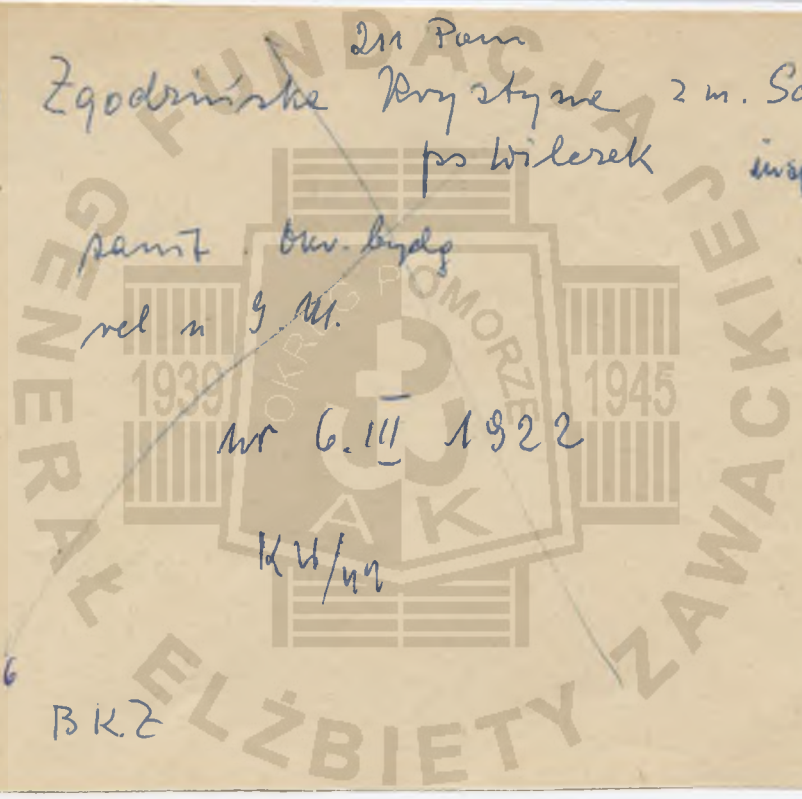 211 Pom
Zgodzińska Krystyna z m. So
ps Wilczek
sanit. Okr. bydg
rel u G. M.
ur 6. III 1922
6
B K. Z
FUNDACJA
GENERAŁ ELŻBIETY ZAWACKIEJ
OKRĘG POMORZE
1939
1945
AK